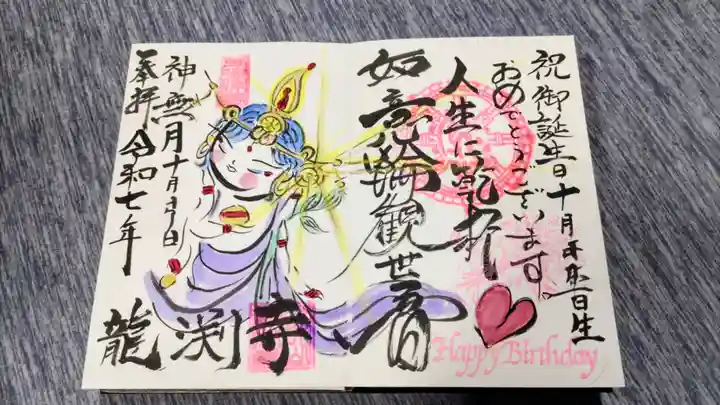 祝御誕生日十月
おめでとうございます
人生に乾杯
如意輪観世音
Happy Birthday
神無月十月
奉拝 令和七年
龍渕寺